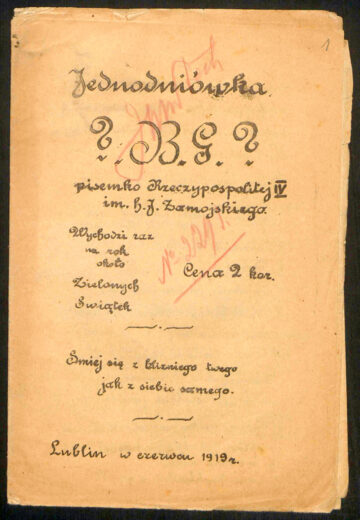 1
Jednodniówka
?.B.G.?
pisemko Rzeczypospolitej IV
im. H. J. Zamojskiego.
Wychodzi raz
na rok
około
Zielonych
Świątek
Cena 2 kor.
Śmiej się z bliźniego twego
jak z siebie samego.
Lublin w czerwcu 1919 r.